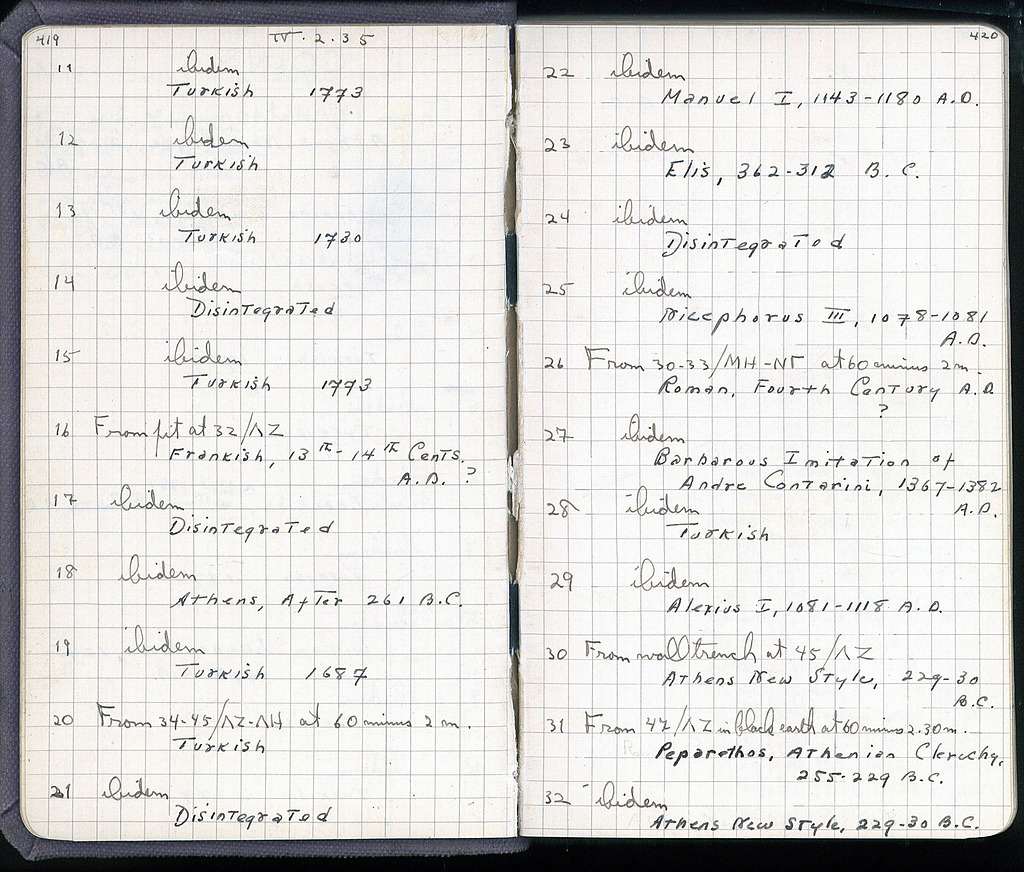 419
IV . 2 . 35
11 ibidem
Turkish 1773
12 ibidem
Turkish
13 ibidem
Turkish 1730
14 ibidem
Disintegrated
15 ibidem
Turkish 1773
16 From pit at 32/ΛΖ
Frankish, 13th - 14th Cents.
A.D. ?
17 ibidem
Disintegrated
18 ibidem
Athens, After 261 B.C.
19 ibidem
Turkish 1687
20 From 34-45/ΛΖ-ΛΗ at 60 minus 2 m.
Turkish
21 ibidem
Disintegrated
420
22 ibidem
Manuel I, 1143-1180 A.D.
23 ibidem
Elis, 362-312 B.C.
24 ibidem
Disintegrated
25 ibidem
Nicephorus III, 1078-1081
A.D.
26 From 30-33/ΜΗ-ΝΓ at 60 minus 2 m.
Roman, Fourth Century A.D.
?
27 ibidem
Barbarous Imitation of
Andre Contarini, 1367-1382
A.D.
28 ibidem
Turkish
29 ibidem
Alexius I, 1081-1118 A.D.
30 From wall trench at 45/ΛΖ
Athens New Style, 229-30
B.C.
31 From 47/ΛΖ in black earth at 60 minus 2.30 m.
Peparethos, Athenian Cleruchy,
255-229 B.C.
32 ibidem
Athens New Style, 229-30 B.C.